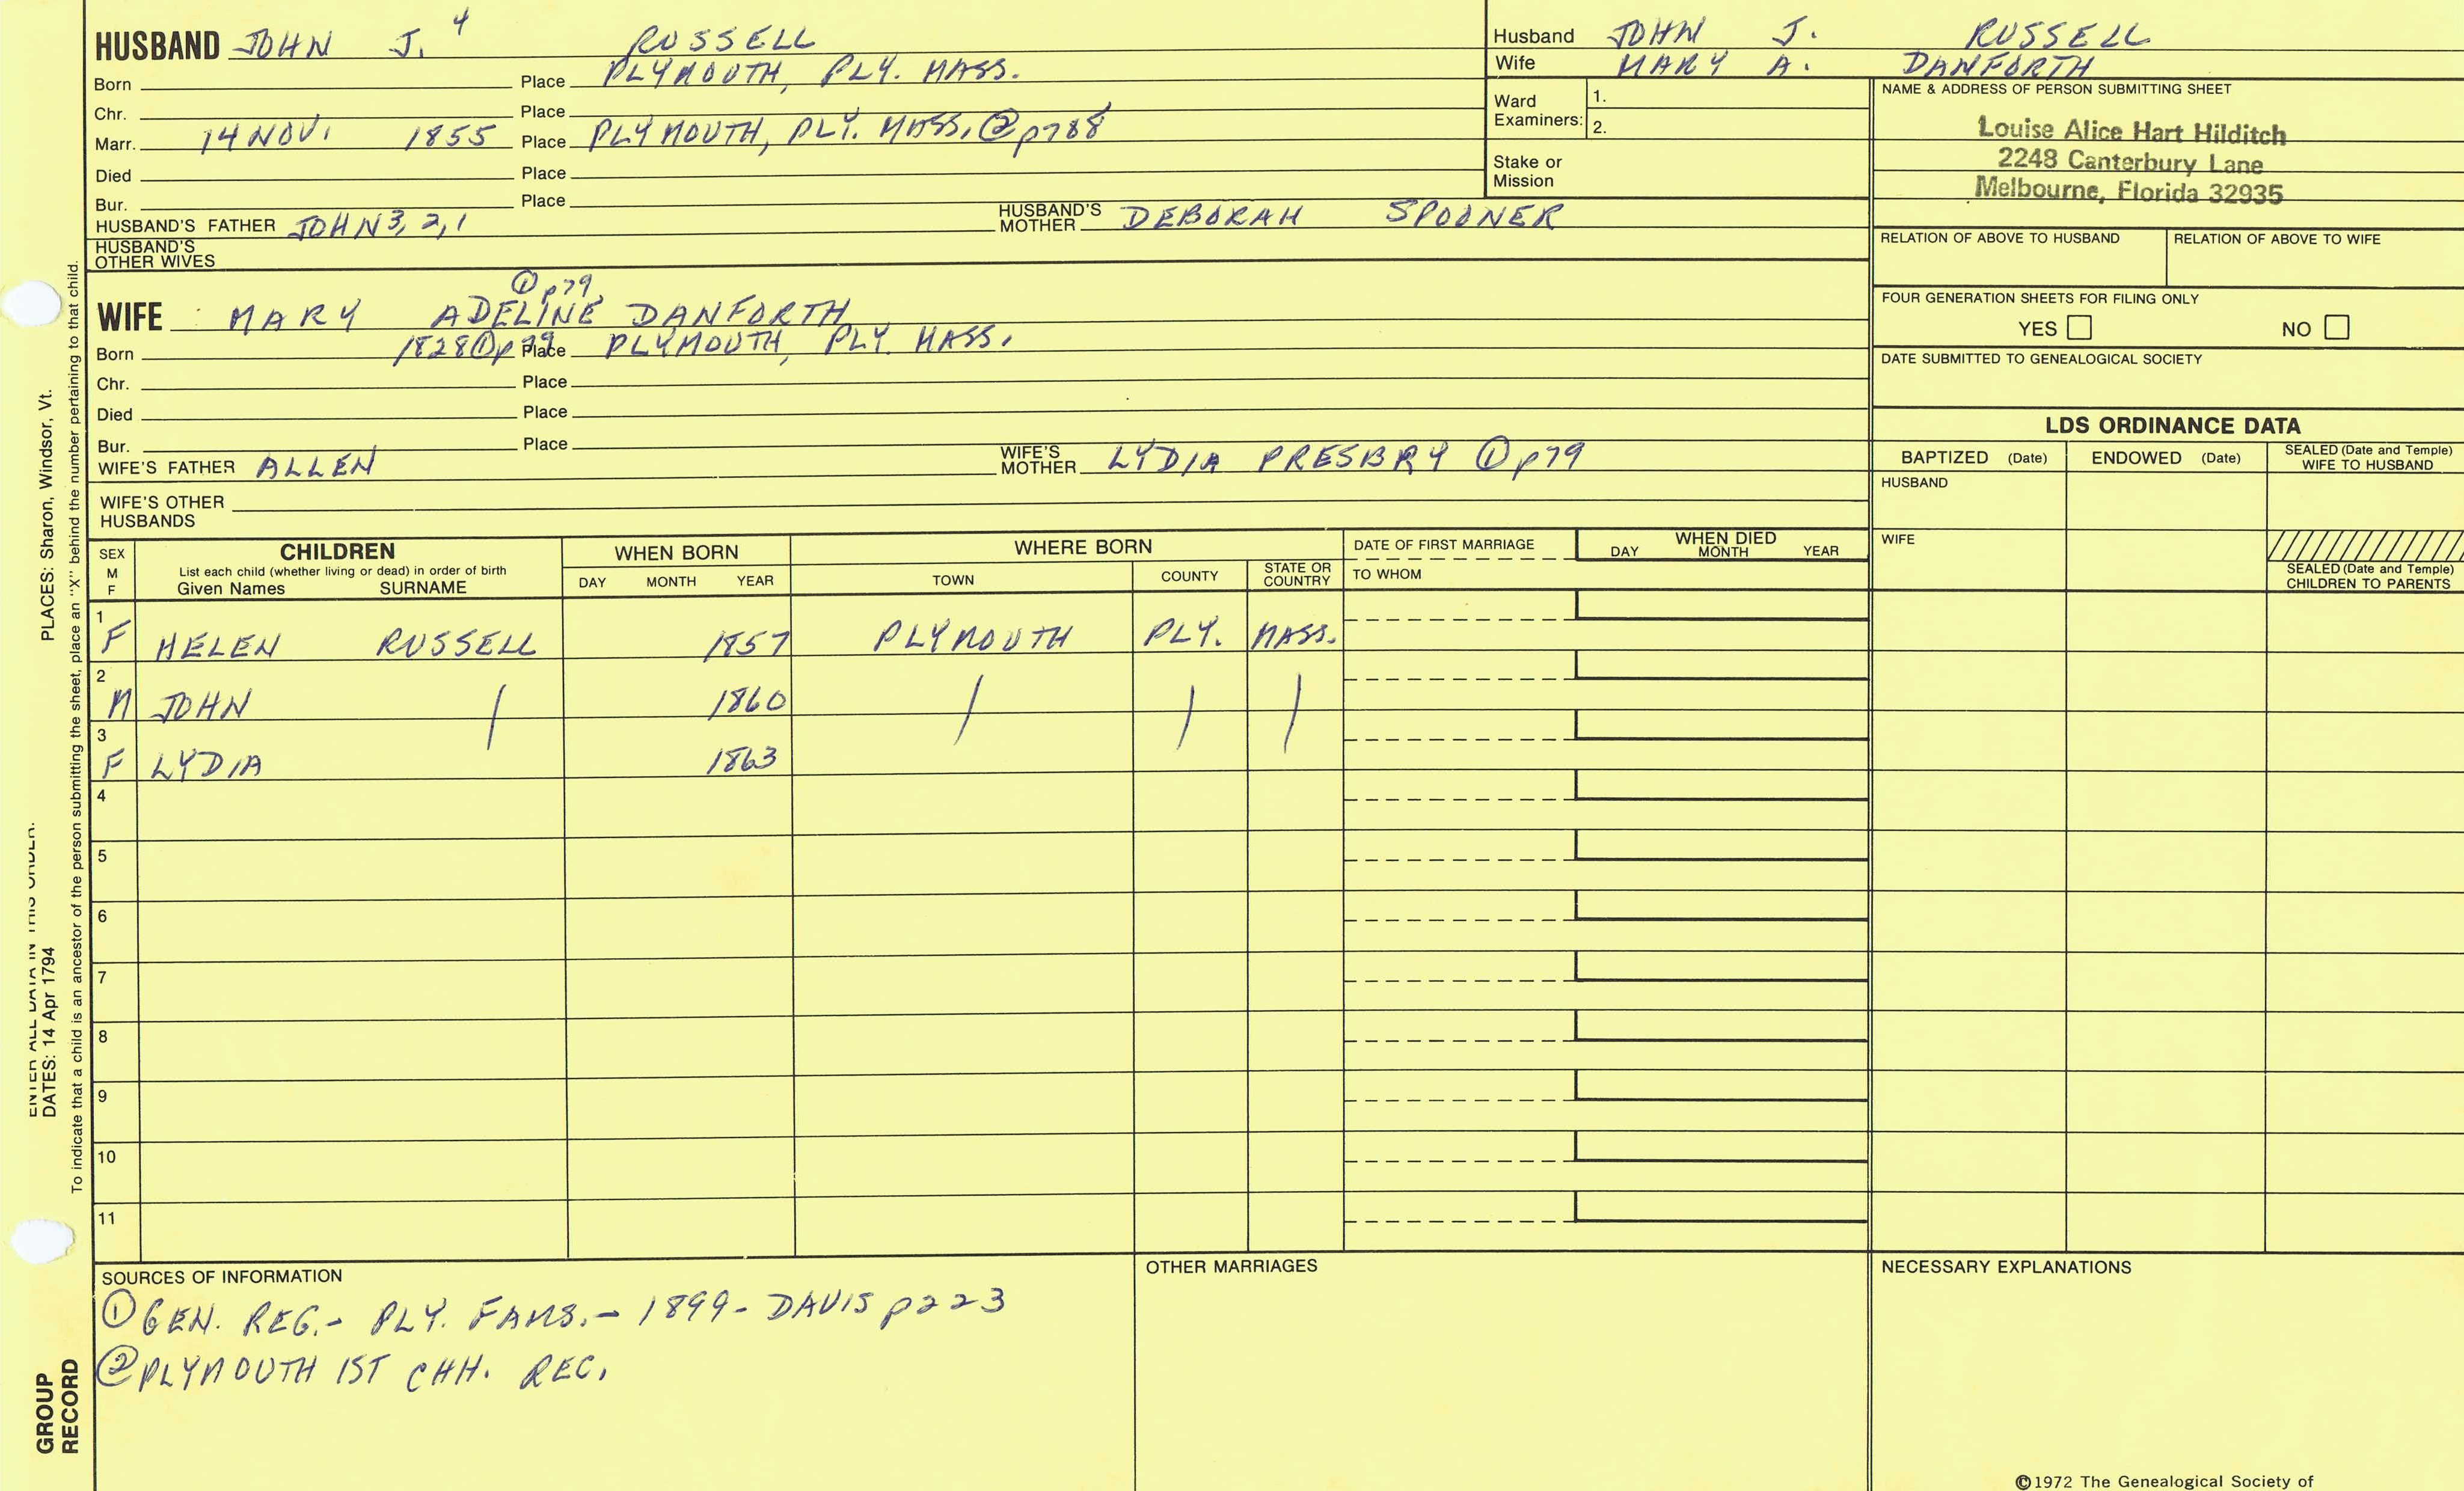 HUSBAND JOHN J. 4 RUSSELL
Born Place PLYMOUTH, PLY. MASS.
Chr. Place
Marr. 14 NOV. 1855 Place PLYMOUTH, PLY. MASS. ② p788
Died Place
Bur. Place
HUSBAND'S FATHER JOHN 3, 2, 1 HUSBAND'S MOTHER DEBORAH SPOONER
HUSBAND'S OTHER WIVES
① p79
WIFE MARY ADELINE DANFORTH
Born 1828 ① p79 Place PLYMOUTH, PLY. MASS.
Chr. Place
Died Place
Bur. Place
WIFE'S FATHER ALLEN WIFE'S MOTHER LYDIA PRESBRY ① p79
WIFE'S OTHER HUSBANDS
Husband JOHN J. RUSSELL
Wife MARY A. DANFORTH
Ward Examiners: 1.
2.
Stake or Mission
NAME & ADDRESS OF PERSON SUBMITTING SHEET
Louise Alice Hart Hilditch
2248 Canterbury Lane
Melbourne, Florida 32935
RELATION OF ABOVE TO HUSBAND RELATION OF ABOVE TO WIFE
FOUR GENERATION SHEETS FOR FILING ONLY
YES NO
DATE SUBMITTED TO GENEALOGICAL SOCIETY
LDS ORDINANCE DATA
BAPTIZED (Date) ENDOWED (Date) SEALED (Date and Temple) WIFE TO HUSBAND
HUSBAND
WIFE
SEALED (Date and Temple) CHILDREN TO PARENTS
SEX M F CHILDREN WHEN BORN WHERE BORN DATE OF FIRST MARRIAGE WHEN DIED
List each child (whether living or dead) in order of birth
Given Names SURNAME DAY MONTH YEAR TOWN COUNTY STATE OR COUNTRY TO WHOM DAY MONTH YEAR
1 F HELEN RUSSELL 1857 PLYMOUTH PLY. MASS.
2 M JOHN / 1860 / / /
3 F LYDIA 1863
4
5
6
7
8
9
10
11
SOURCES OF INFORMATION
① GEN. REG.- PLY. FAMS.- 1899- DAVIS p223
② PLYMOUTH 1ST CHH. REC.
OTHER MARRIAGES
NECESSARY EXPLANATIONS
©1972 The Genealogical Society of
ENTER ALL DATA IN THIS ORDER:
PLACES: Sharon, Windsor, Vt.
DATES: 14 Apr 1794
To indicate that a child is an ancestor of the person submitting the sheet, place an "X" behind the number pertaining to that child.
GROUP RECORD